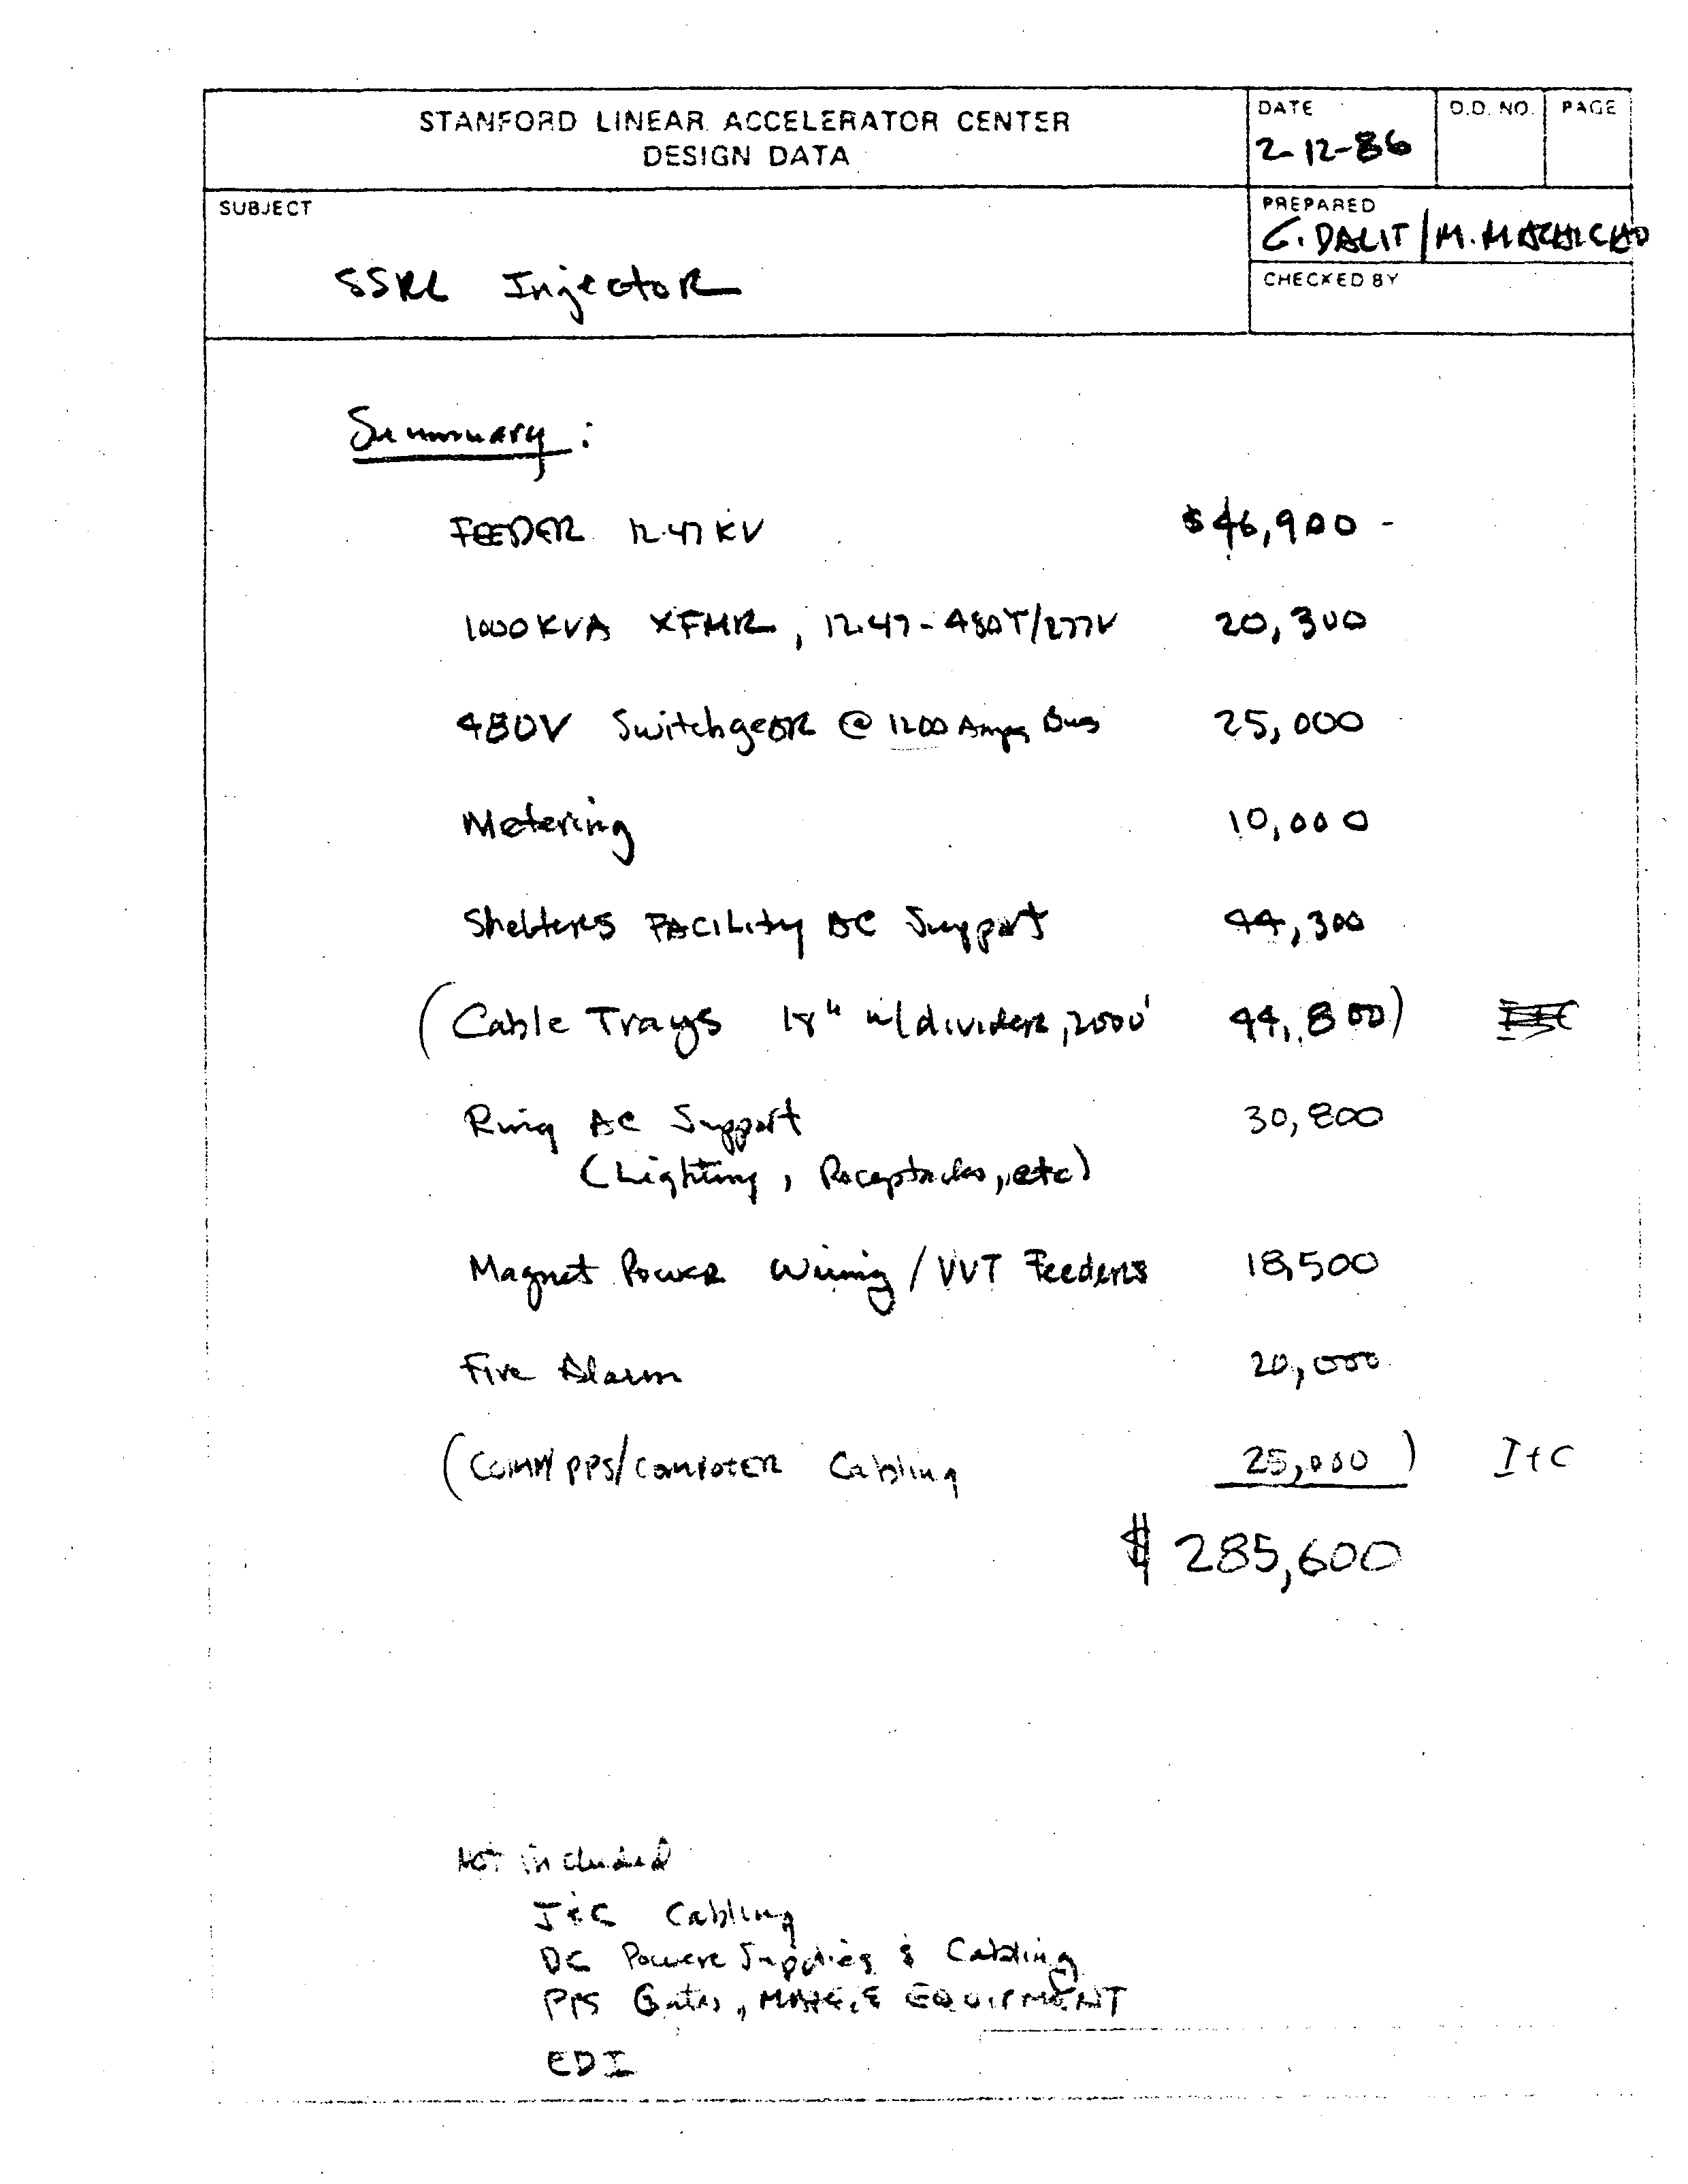 STANFORD LINEAR ACCELERATOR CENTER
DESIGN DATA
DATE
2-12-86
D.D. NO.
PAGE
SUBJECT
SSRL Injector
PREPARED
G. DALIT / M. MACHICAO
CHECKED BY
Summary:
FEEDER 12.47 KV $46,900 -
1000 KVA XFMR, 12.47-480Y/277V 20,300
480V Switchgear @ 1200 Amps Bus 25,000
Metering 10,000
Shelters FACILITY AC Support 44,300
(Cable Trays 18" w/divider, 2000' 44,800)
Ring AC Support 30,800
(Lighting, Receptacles, etc)
Magnet Power Wiring / VVT Feeders 18,500
Fire Alarm 20,000
(COMM/PPS/COMPUTER Cabling 25,000) I+C
$ 285,600
Not included
I&C Cabling
DC Power Supplies & Cabling
PPS Gates, EQUIPMENT
EDI